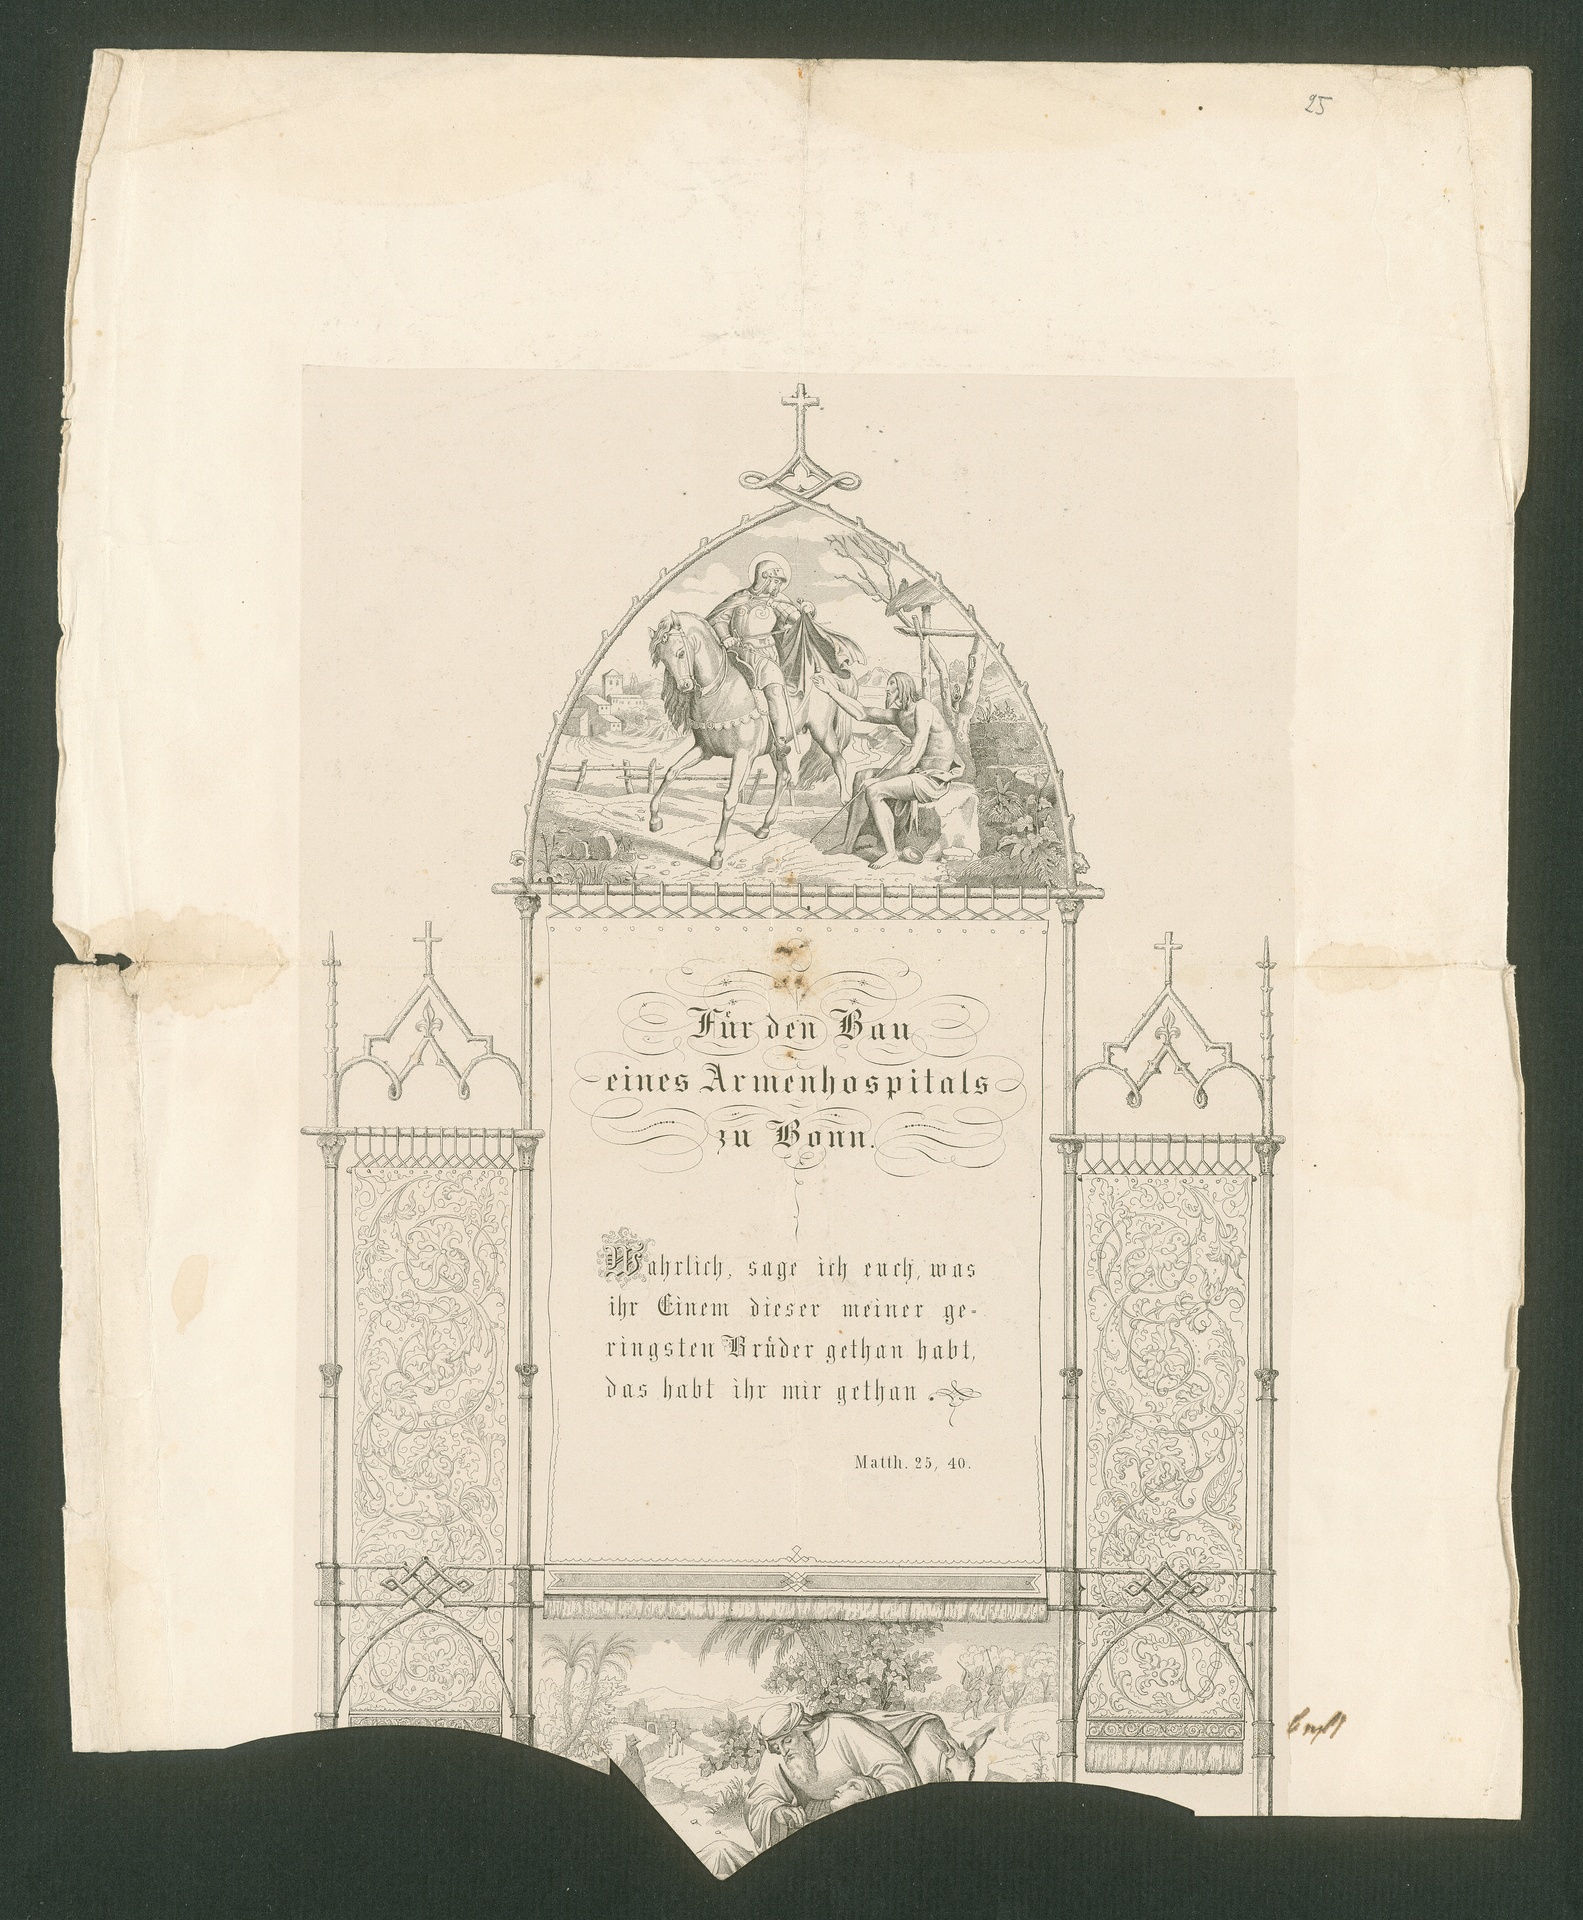 25
Für den Bau
eines Armenhospitals
zu Bonn.
Wahrlich, sage ich euch, was
ihr Einem dieser meiner ge-
ringsten Brüder gethan habt,
das habt ihr mir gethan.
Matth. 25, 40.